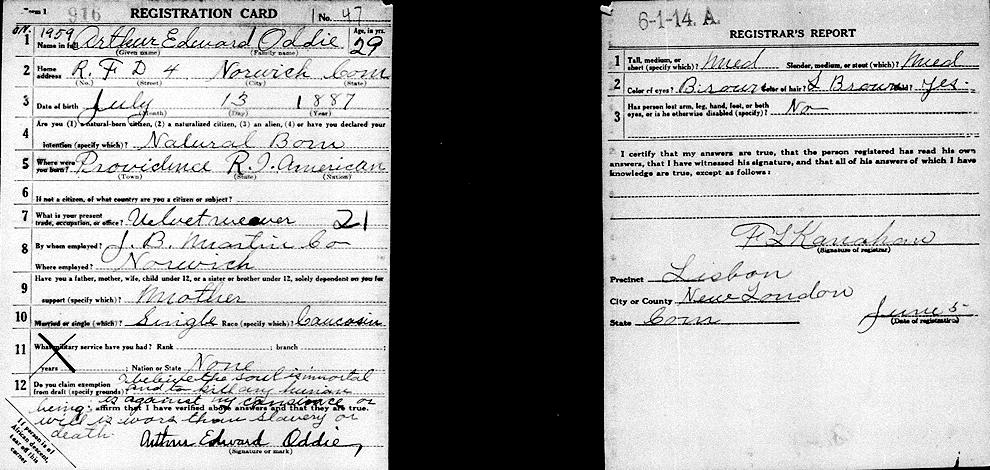 Form 1 916 REGISTRATION CARD No. 47
1 1959 Name in full Arthur Edward Oddie Age, in yrs. 29
(Given name) (Family name)
2 Home address R. F D 4 Norwich Conn
(No.) (Street) (City) (State)
3 Date of birth July 13 1887
(Month) (Day) (Year)
Are you (1) a natural-born citizen, (2) a naturalized citizen, (3) an alien, (4) or have you declared your
4 intention (specify which)? Natural Born
5 Where were you born? Providence R. I. American
(Town) (State) (Nation)
6 If not a citizen, of what country are you a citizen or subject?
7 What is your present trade, occupation, or office? Velvet weaver 21
8 By whom employed? J. B. Martin Co
Where employed? Norwich
9 Have you a father, mother, wife, child under 12, or a sister or brother under 12, solely dependent on you for
support (specify which)? Mother
10 Married or single (which)? Single Race (specify which)? Caucasin
11 What military service have you had? Rank ; branch
years ; Nation or State None
12 Do you claim exemption from draft (specify grounds)? I believe the soul is immortal
and to kill any human
being is against my consience or
I affirm that I have verified above answers and that they are true.
will is wors than slavery or
death
Arthur Edward Oddie
(Signature or mark)
If person is of
African descent,
tear off this
corner
6-1-14. A.
REGISTRAR'S REPORT
1 Tall, medium, or short (specify which)? Med Slender, medium, or stout (which)? Med
2 Color of eyes? Color of hair? L Brown Bald? Yes
3 Has person lost arm, leg, hand, foot, or both
eyes, or is he otherwise disabled (specify)? No
I certify that my answers are true, that the person registered has read his own
answers, that I have witnessed his signature, and that all of his answers of which I have
knowledge are true, except as follows:
F L Kanahan
(Signature of registrar)
Precinct Lisbon
City or County New London
State Conn June 5
(Date of registration)